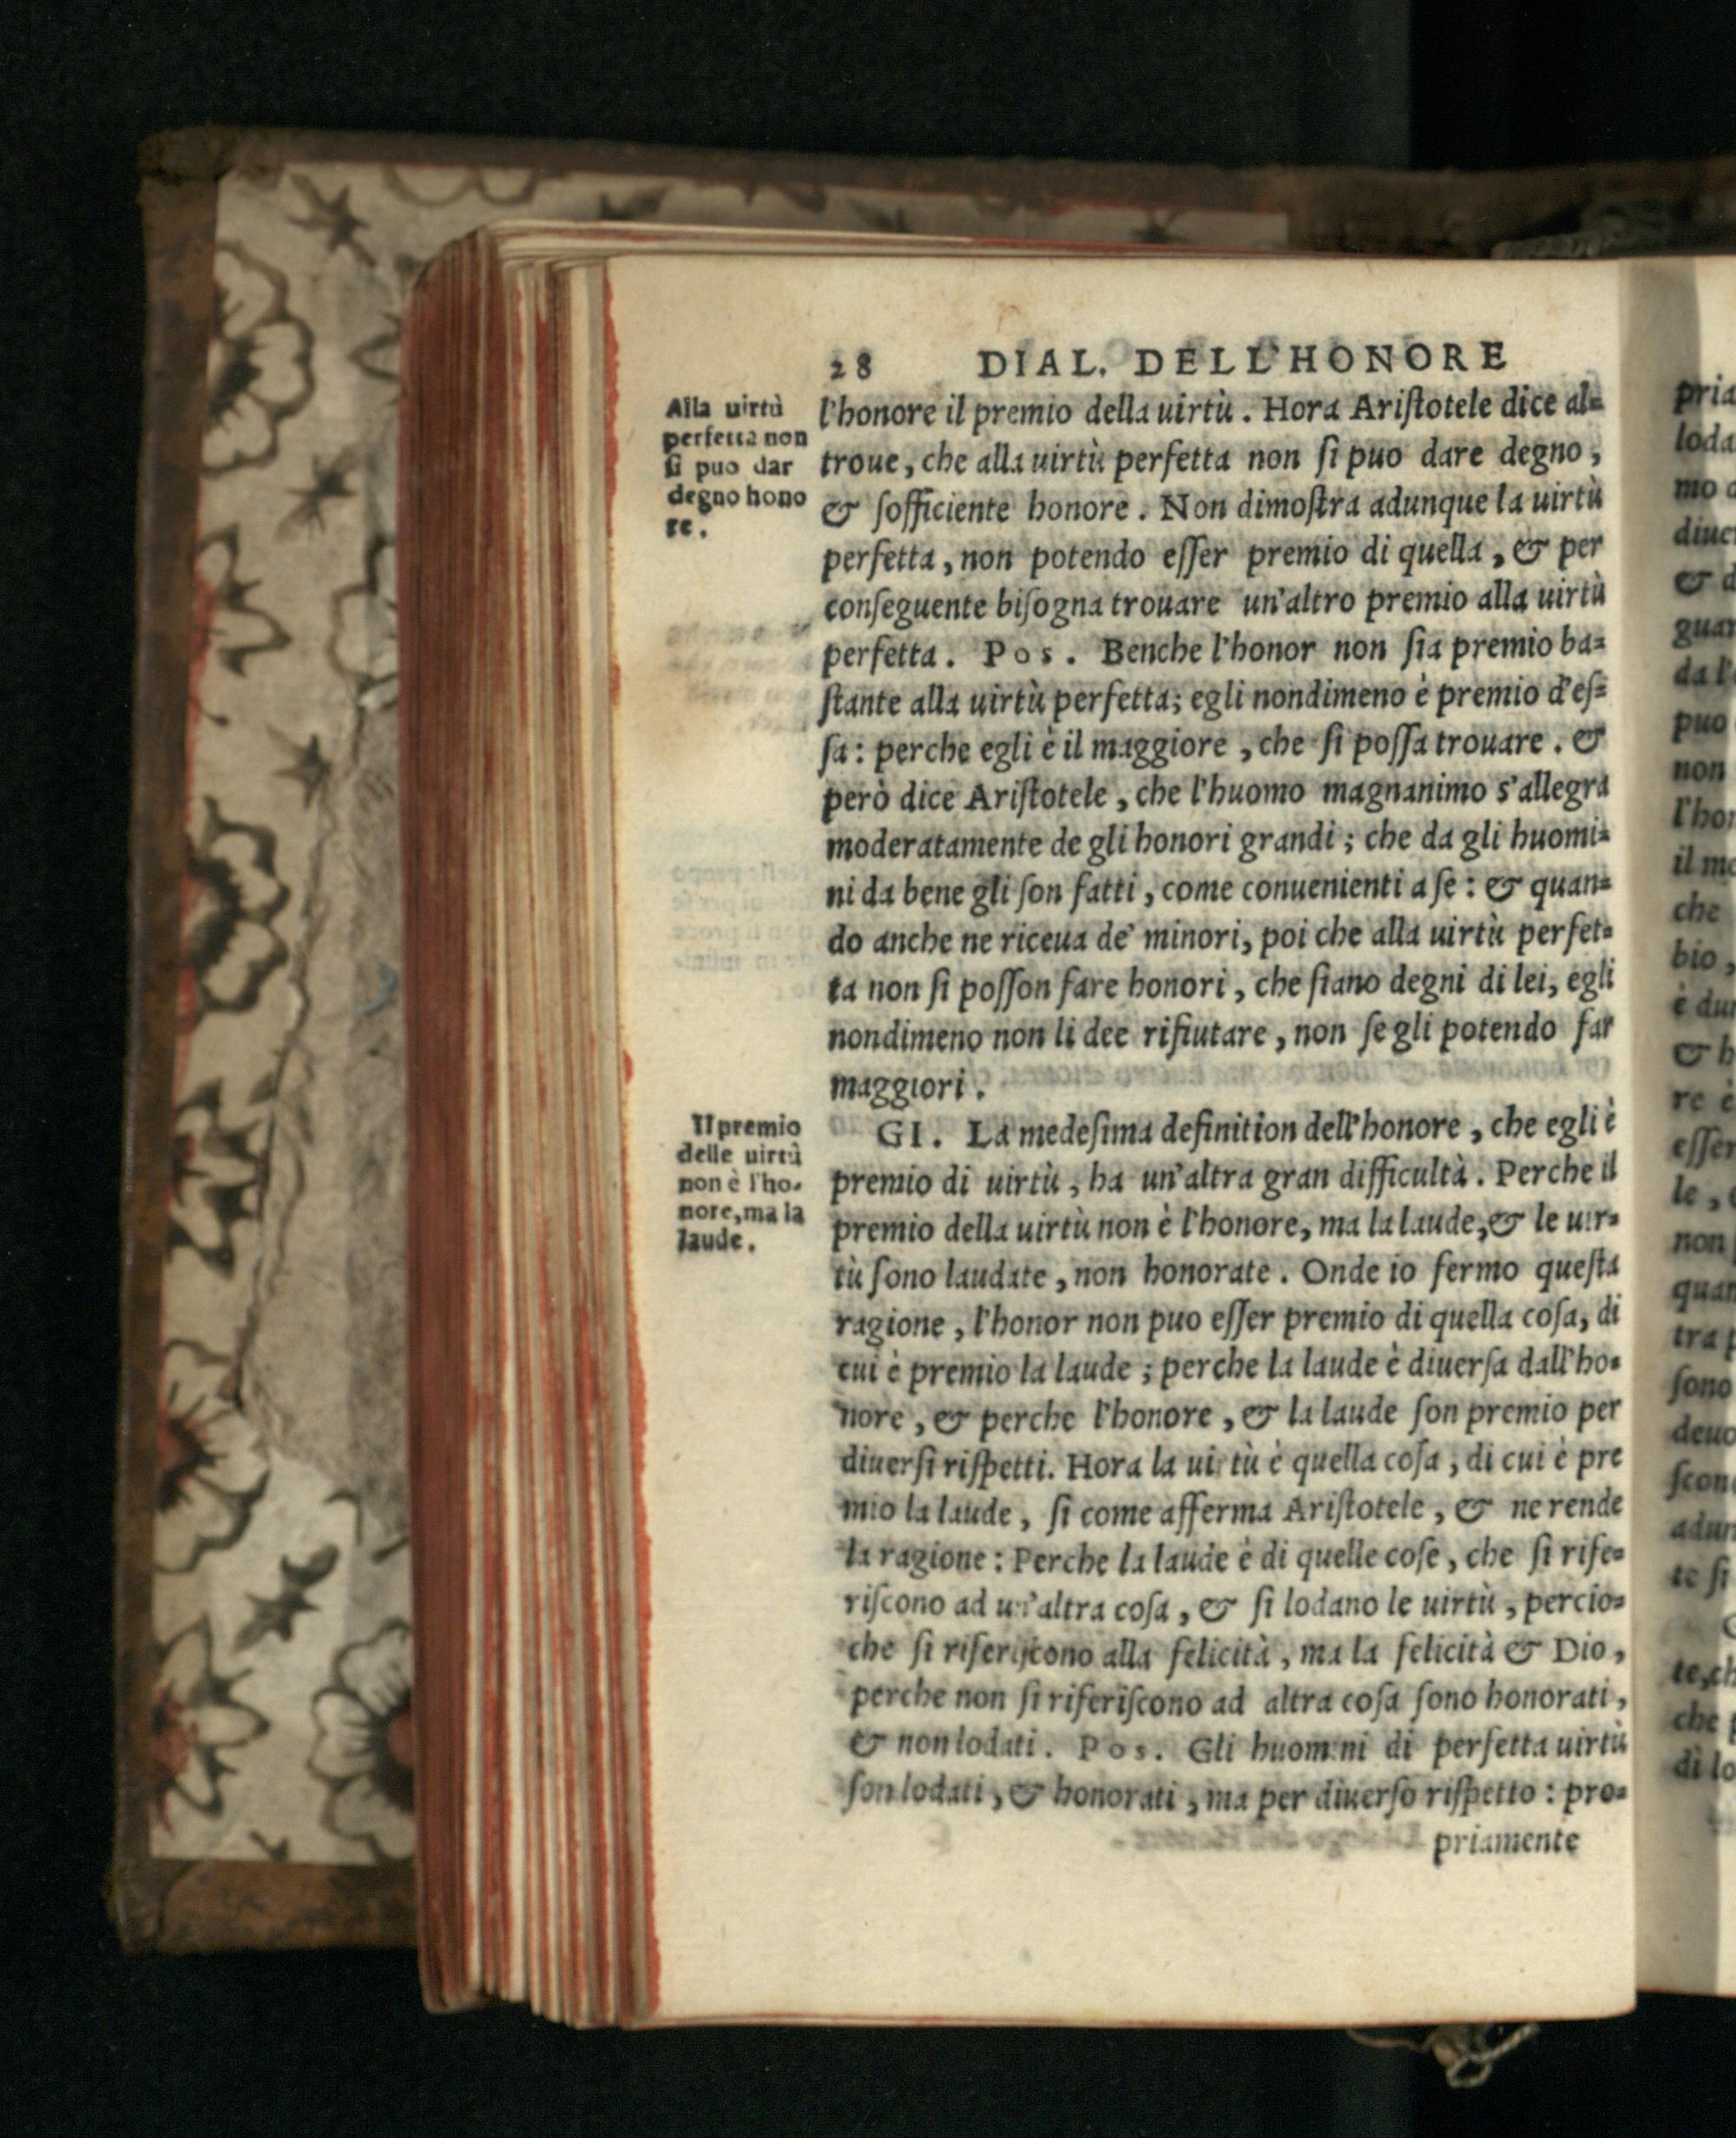 28 DIAL. DELL'HONORE
Alla uirtù
perfetta non
ſi puo dar
degno hono
re.
l'honore il premio della uirtù. Hora Ariſtotele dice al=
troue, che alla uirtù perfetta non ſi puo dare degno,
& ſofficiente honore. Non dimoſtra adunque la uirtù
perfetta, non potendo eſſer premio di quella, & per
conſeguente biſogna trouare un'altro premio alla uirtù
perfetta. Pos. Benche l'honor non ſia premio ba=
ſtante alla uirtù perfetta; egli nondimeno è premio d'eſ=
ſa: perche egli è il maggiore, che ſi poſſa trouare. &
però dice Ariſtotele, che l'huomo magnanimo s'allegra
moderatamente de gli honori grandi; che da gli huomi=
ni da bene gli ſon fatti, come conuenienti a ſe: & quan=
do anche ne riceua de' minori, poi che alla uirtù perfet=
ta non ſi poſſon fare honori, che ſiano degni di lei, egli
nondimeno non li dee rifiutare, non ſe gli potendo far
maggiori.
Il premio
delle uirtù
non è l'ho-
nore, ma la
laude.
GI. La medeſima definition dell'honore, che egli è
premio di uirtù, ha un'altra gran difficultà. Perche il
premio della uirtù non è l'honore, ma la laude, & le uir=
tù ſono laudate, non honorate. Onde io fermo queſta
ragione, l'honor non puo eſſer premio di quella coſa, di
cui è premio la laude; perche la laude è diuerſa dall'ho=
nore, & perche l'honore, & la laude ſon premio per
diuerſi riſpetti. Hora la uirtù è quella coſa, di cui è pre
mio la laude, ſi come afferma Ariſtotele, & ne rende
la ragione: Perche la laude è di quelle coſe, che ſi rife=
riſcono ad un'altra coſa, & ſi lodano le uirtù, percio=
che ſi riferiſcono alla felicità, ma la felicità & Dio,
perche non ſi riferiſcono ad altra coſa ſono honorati,
& non lodati. Pos. Gli huomini di perfetta uirtù
ſon lodati, & honorati, ma per diuerſo riſpetto: pro=
priamente
pria
loda
mo
diuer
& d
guar
da l'
puo
non
l'hor
il mo
che
bio,
è dur
& h
re e
eſſer
le,
non
quan
tra p
ſono
deuo
ſcon
adun
te ſi
te, ch
che p
di lo